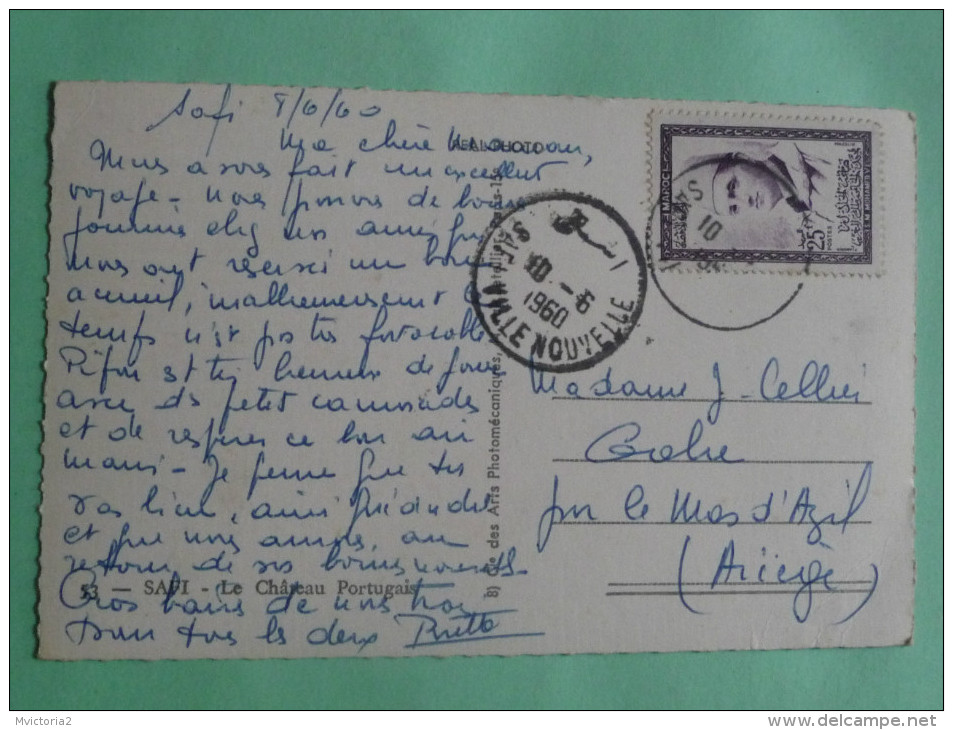 Safi 8/6/60
Ma chère Maman,
REAL PHOTO
Nous avons fait un excellent
voyage - nous passons de bonnes
journées chez nos amis qui
nous ont réservé un bon
accueil, malheureusement le
temps n'est pas très favorable
est très heureux de jouer
avec ds petit camarades
et de respirer ce bon air
marin - Je pense que tu
vas bien, ainsi
et que nous aurons, au
retour, de vos bonnes nouvelles
53 — SAFI - Le Château Portugais
Gros baisers de nous trois
pour tous les deux
8) Cie des Arts Photomécaniques,
SAFI VILLE NOUVELLE
10 - 6
1960
MAROC
POSTES
25
Madame J. Cellier
par le Mas d'Azil
(Ariège)
Mvictoria2
www.delcampe.net